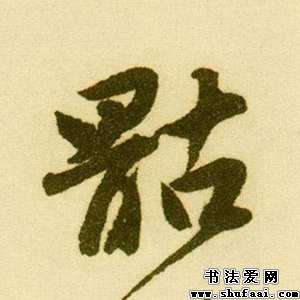 骷
书法爱网
www.shufaai.com